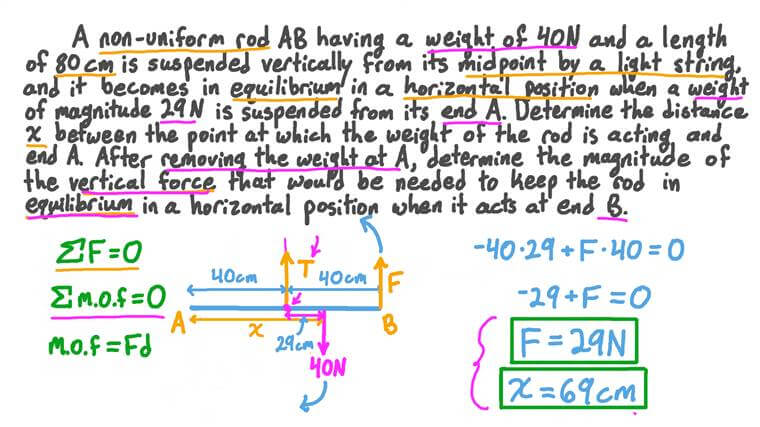 A non-uniform rod AB having a weight of 40N and a length
of 80 cm is suspended vertically from its midpoint by a light string,
and it becomes in equilibrium in a horizontal position when a weight
of magnitude 29N is suspended from its end A. Determine the distance
x between the point at which the weight of the rod is acting and
end A. After removing the weight at A, determine the magnitude of
the vertical force that would be needed to keep the rod in
equilibrium in a horizontal position when it acts at end B.
ΣF=0
Σm.o.f=0
m.o.f=Fd
40cm
T
40cm
F
A
x
29cm
B
40N
-40·29+F·40=0
-29+F=0
F=29N
x=69cm